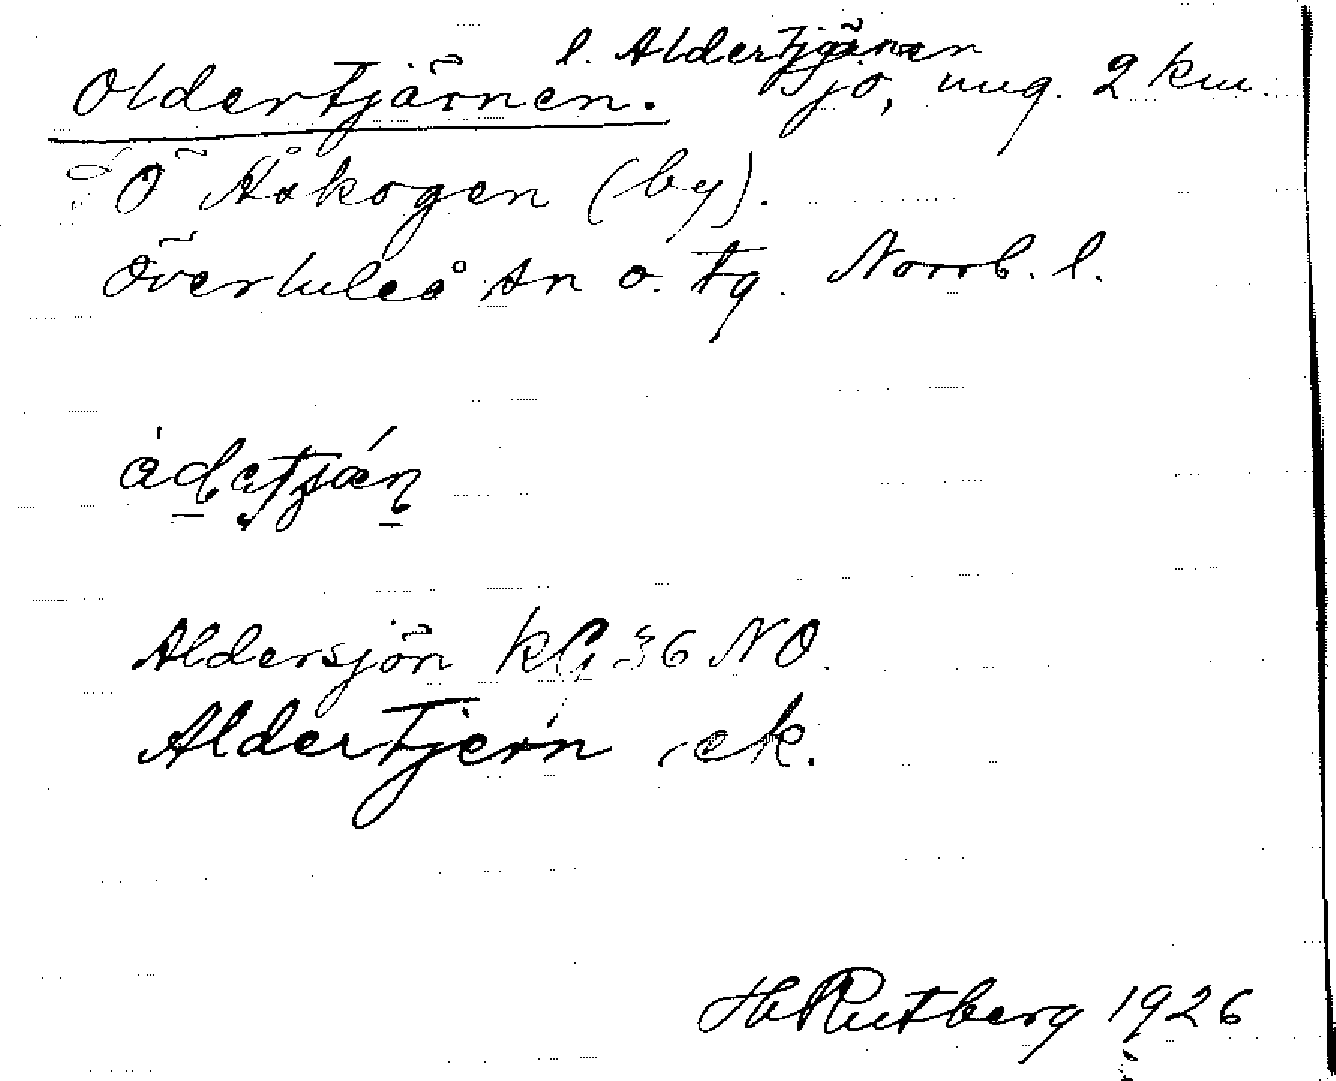 l. Aldertjärnen
Oldertjärnen. Sjö, ung. 2 km.
Ö Åskogen (by).
Överluleå sn o. tg. Norrb. l.
Aldersjön KG 36 NO.
Aldertjern ek.
H Rutberg 1926